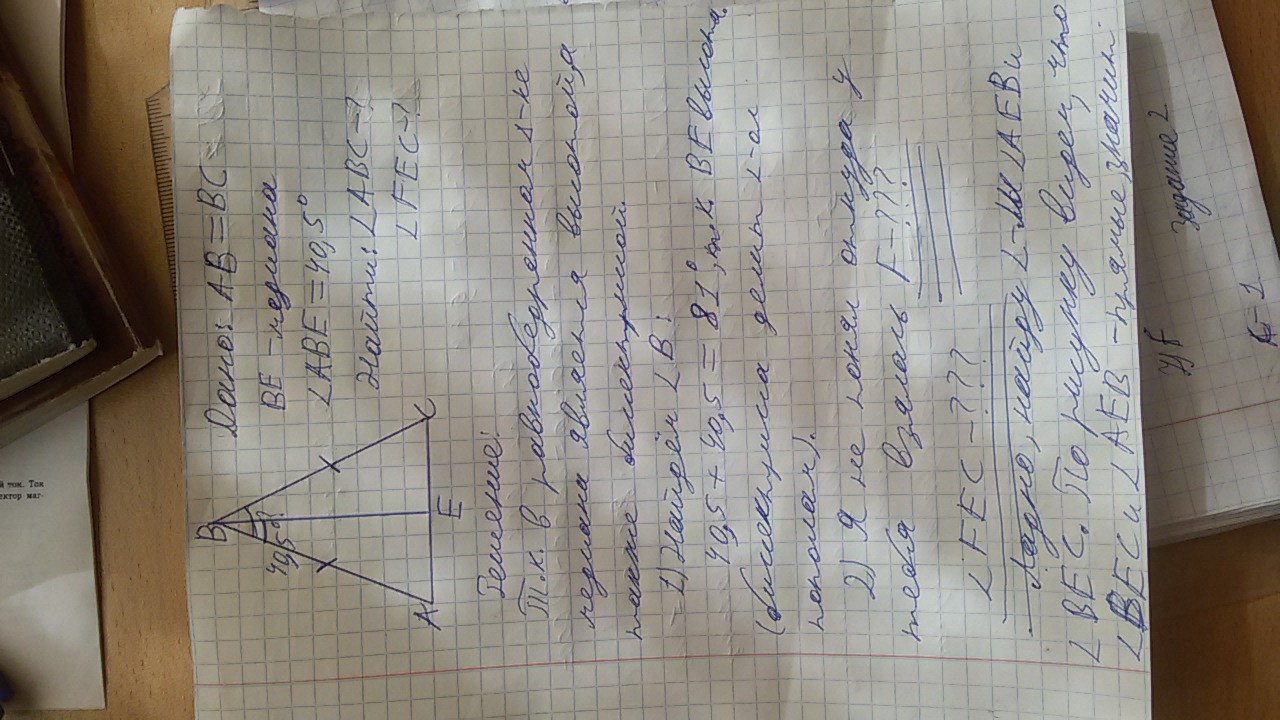 Дано: AB = BC
BE - медиана
∠ABE = 40,5°
Найти: ∠ABC - ?
∠FEC - ?
B
40,5°
A
E
C
Решение:
Т.к. в равнобедренном △-ке
медиана является высотой, а
также биссектрисой.
1) Найдём ∠B:
40,5 + 40,5 = 81°, т.к. BE высота.
(биссектриса делит ∠-ол
пополам).
2) Я не понял откуда у
тебя взялась F - ???
∠FEC - ???
Ладно, найду ∠-лы ∠AEB и
∠BEC. По рисунку видем, что
∠BEC и ∠AEB - прямые, значит
задание 2
1
й ток. Ток
ектор маг-